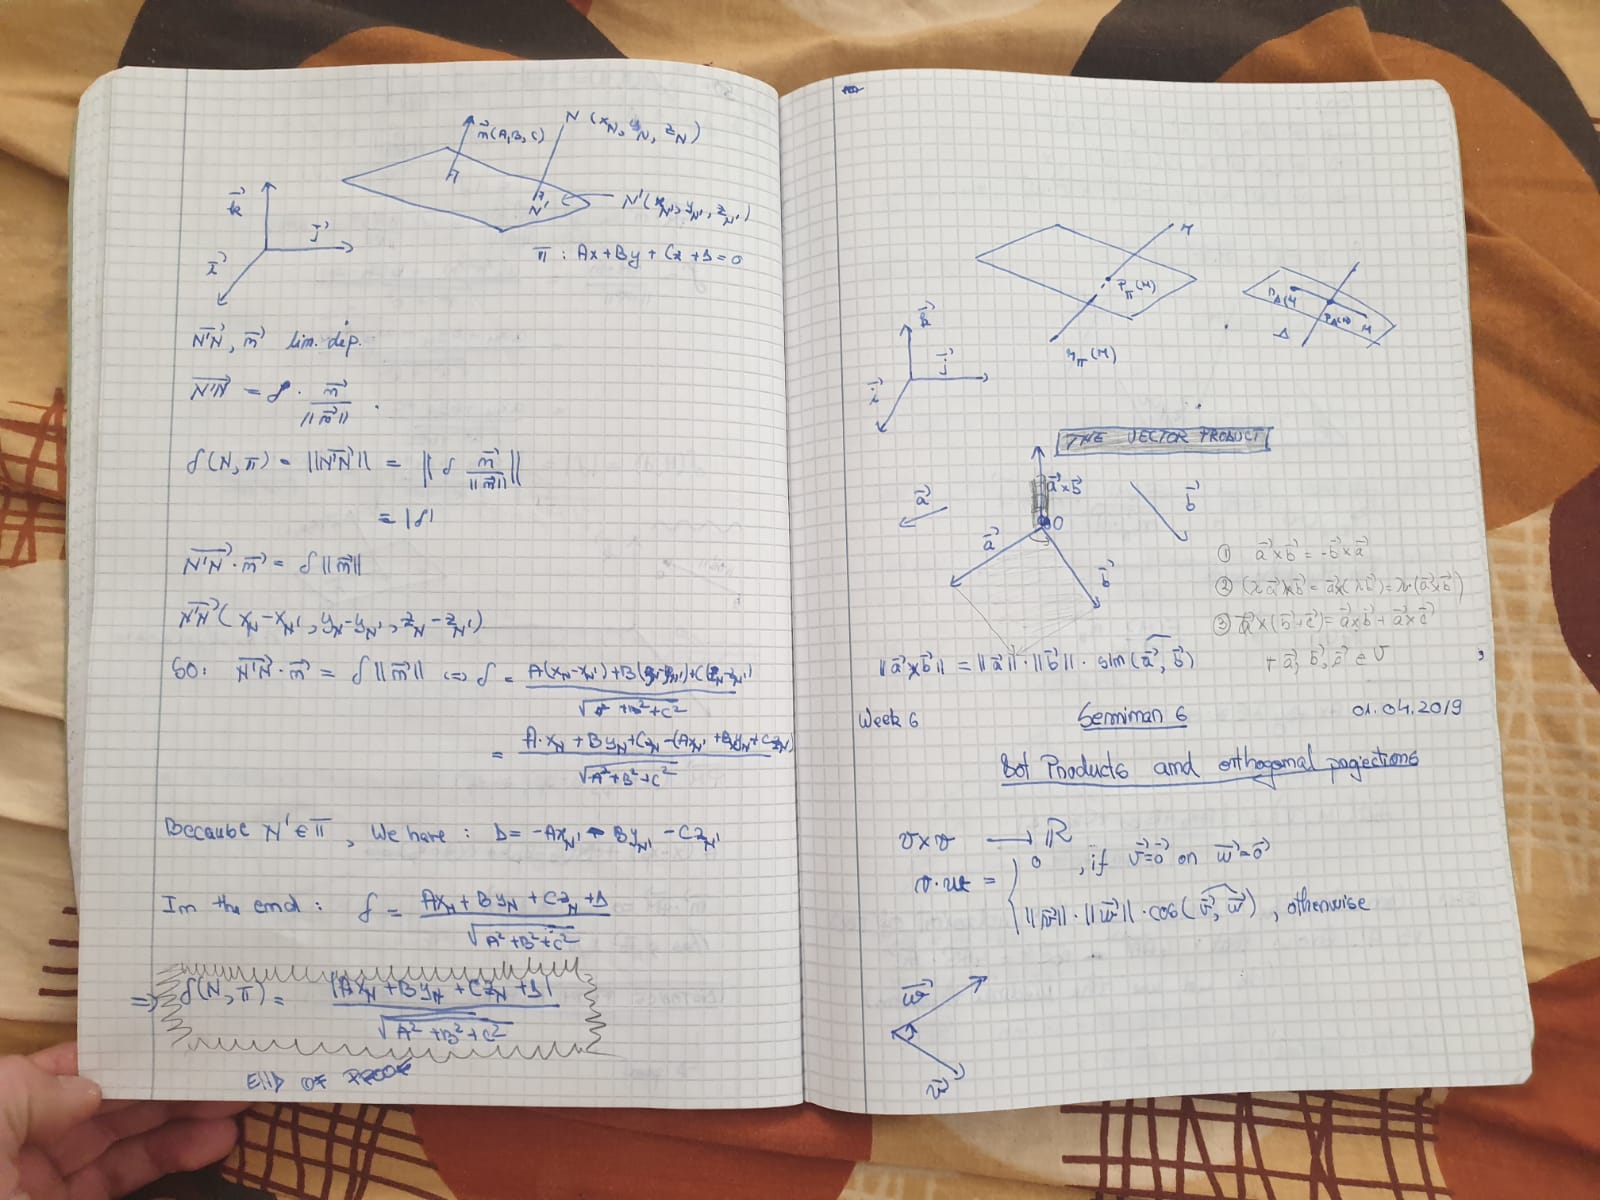 n⃗(A,B,C)
N (x_N, y_N, z_N)
k⃗
j⃗
i⃗
N'
N'(x_N', y_N', z_N')
π : Ax + By + Cz + D = 0
N'N⃗, n⃗ lin. dep.
N'N⃗ = δ · n⃗ / ||n⃗|| .
δ(N, π) = ||N'N⃗|| = || δ n⃗ / ||n⃗|| ||
= |δ|
N'N⃗ · n⃗ = δ ||n⃗||
N'N⃗ (x_N - x_N', y_N - y_N', z_N - z_N')
SO: N'N⃗ · n⃗ = δ ||n⃗|| <=> δ = A(x_N - x_N') + B(y_N - y_N') + C(z_N - z_N') / √A² + B² + C²
= A·x_N + By_N + Cz_N - (Ax_N' + By_N' + Cz_N') / √A² + B² + C²
Because N' ∈ π, we have : D = -Ax_N' - By_N' - Cz_N'
In the end : δ = Ax_N + By_N + Cz_N + D / √A² + B² + C²
=> δ(N, π) = |Ax_N + By_N + Cz_N + D| / √A² + B² + C²
END OF PROOF
M
P_π(M)
r_π(M)
P_Δ(M)
M
Δ
k⃗
j⃗
i⃗
THE VECTOR PRODUCT
a⃗
a⃗ × b⃗
b⃗
O
a⃗
b⃗
① a⃗ × b⃗ = -b⃗ × a⃗
② (λ a⃗) × b⃗ = a⃗ × (λ b⃗) = λ·(a⃗ × b⃗)
③ a⃗ × (b⃗ + c⃗) = a⃗ × b⃗ + a⃗ × c⃗
∀ a⃗, b⃗, c⃗ ∈ V
||a⃗ × b⃗|| = ||a⃗|| · ||b⃗|| · sin(a⃗, b⃗)
Week 6 Seminar 6 01.04.2019
Dot Products and orthogonal projections
V × V → ℝ
v · w = { 0 , if v⃗ = 0⃗ or w⃗ = 0⃗
||v⃗|| · ||w⃗|| · cos(v⃗, w⃗) , otherwise
w⃗
v⃗